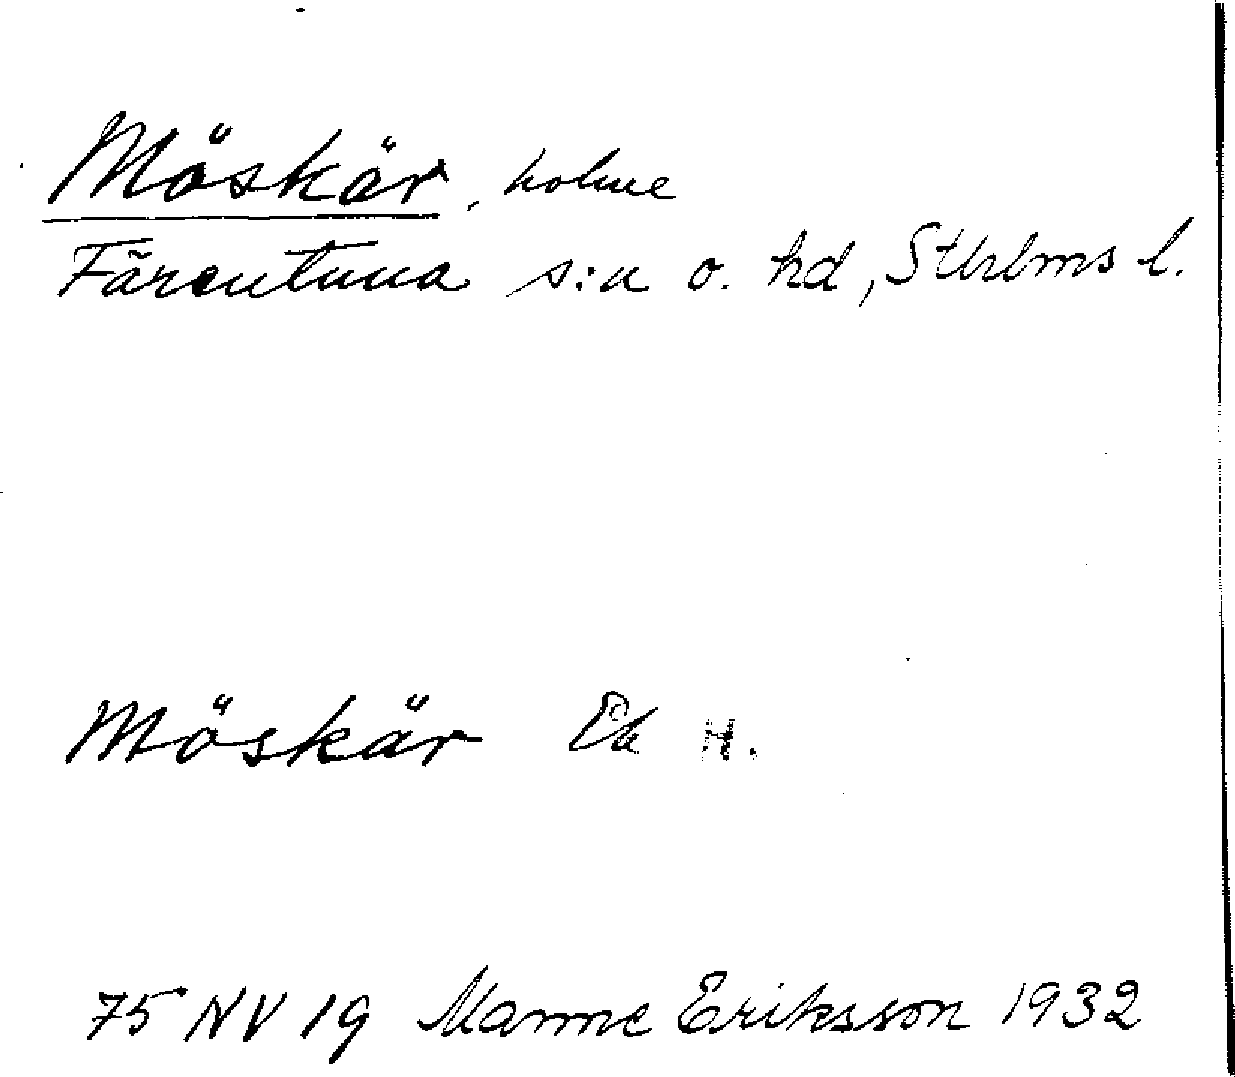 Möskär, holme
Färentuna s:n o. hd, Sthlms l.
Möskär Ek H.
75 NV 19 Manne Eriksson 1932